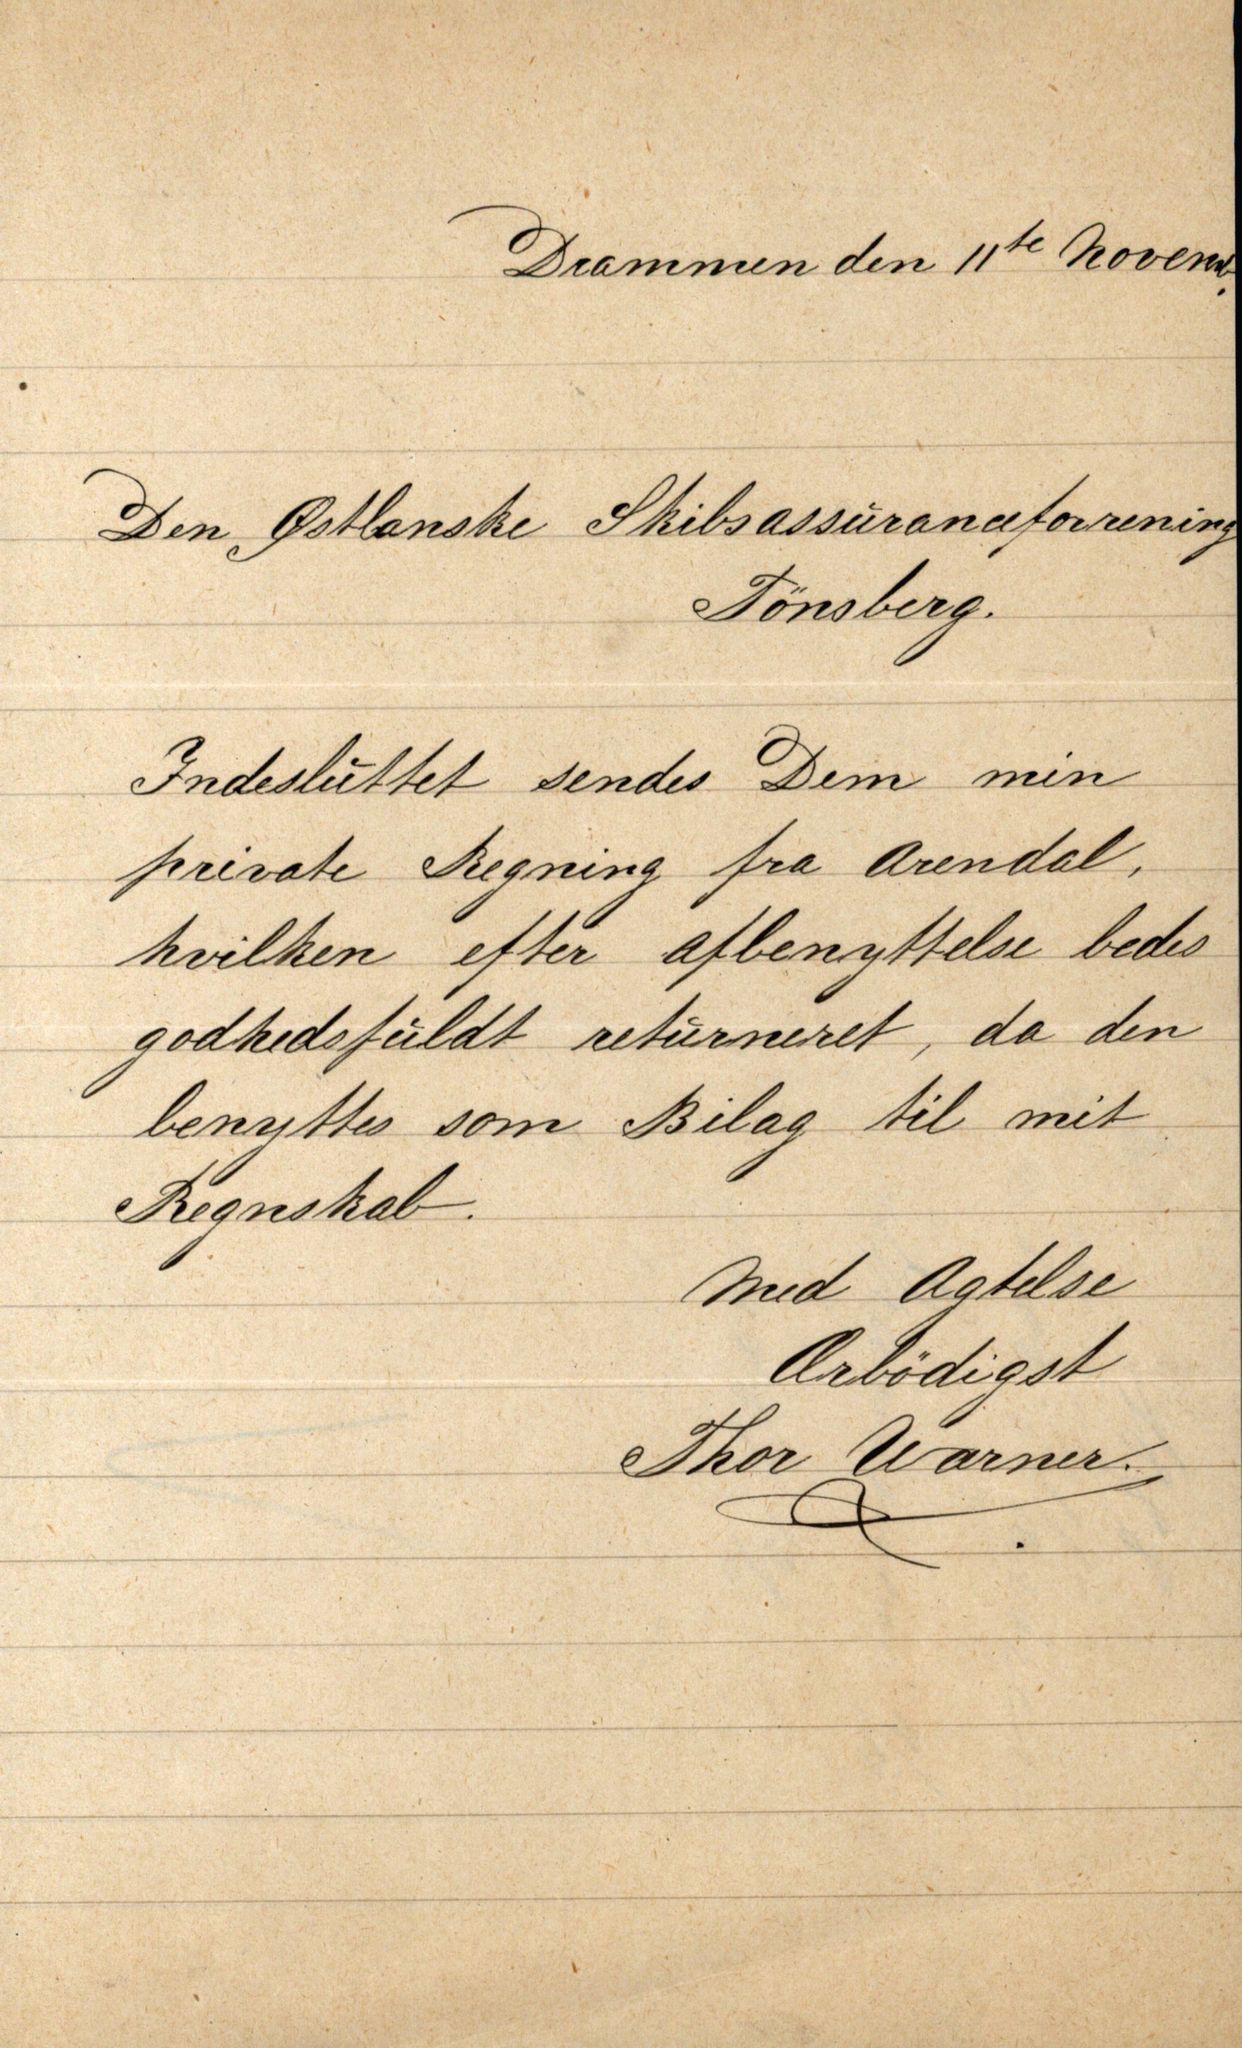 Drammen den 11te Novemb.
Den Østlanske Skibsassuranceforrening
Tönsberg.
Indesluttet sendes Dem min
private Regning fra Arendal,
hvilken efter Afbenyttelse bedes
godhedsfuldt returneret, da den
benyttes som Bilag til mit
Regnskab.
Med Agtelse
Ærbödigst
Thor Warner.